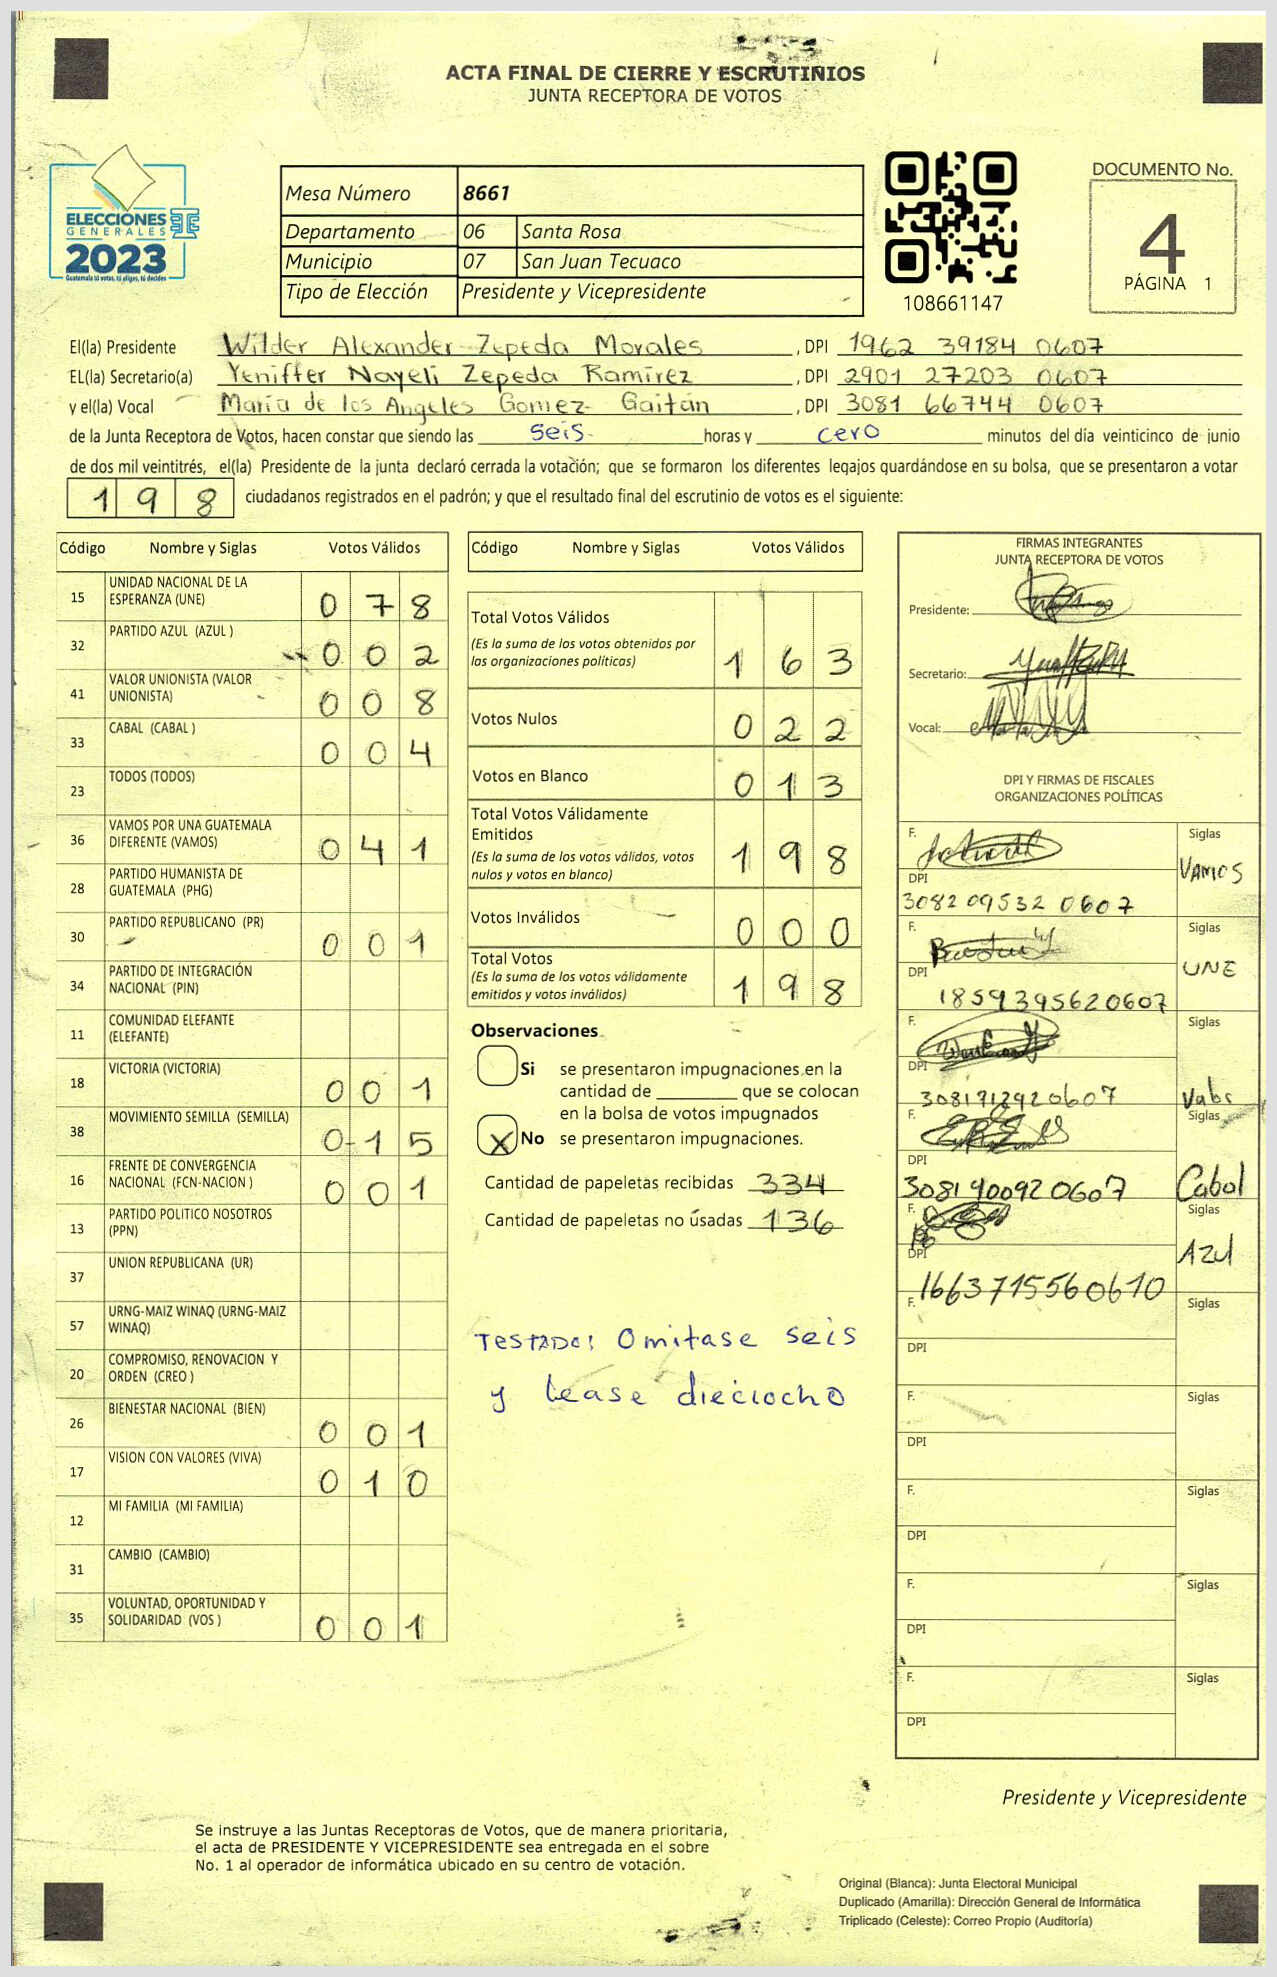 ACTA FINAL DE CIERRE Y ESCRUTINIOS
JUNTA RECEPTORA DE VOTOS
ELECCIONES
GENERALES
2023
Guatemala tú votas, tú eliges, tú decides
Mesa Número 8661
Departamento 06 Santa Rosa
Municipio 07 San Juan Tecuaco
Tipo de Elección Presidente y Vicepresidente
108661147
DOCUMENTO No.
4
PÁGINA 1
El(la) Presidente Wilder Alexander Zepeda Morales, DPI 1962 39184 0607
EL(la) Secretario(a) Yeniffer Nayeli Zepeda Ramírez, DPI 2901 27203 0607
y el(la) Vocal María de los Angeles Gomez Gaitán, DPI 3081 66744 0607
de la Junta Receptora de Votos, hacen constar que siendo las seis horas y cero minutos del día veinticinco de junio
de dos mil veintitrés, el(la) Presidente de la junta declaró cerrada la votación; que se formaron los diferentes legajos guardándose en su bolsa, que se presentaron a votar
198 ciudadanos registrados en el padrón; y que el resultado final del escrutinio de votos es el siguiente:
Código Nombre y Siglas Votos Válidos
15 UNIDAD NACIONAL DE LA ESPERANZA (UNE) 078
32 PARTIDO AZUL (AZUL ) 002
41 VALOR UNIONISTA (VALOR UNIONISTA) 008
33 CABAL (CABAL ) 004
23 TODOS (TODOS)
36 VAMOS POR UNA GUATEMALA DIFERENTE (VAMOS) 041
28 PARTIDO HUMANISTA DE GUATEMALA (PHG)
30 PARTIDO REPUBLICANO (PR) 001
34 PARTIDO DE INTEGRACIÓN NACIONAL (PIN)
11 COMUNIDAD ELEFANTE (ELEFANTE)
18 VICTORIA (VICTORIA) 001
38 MOVIMIENTO SEMILLA (SEMILLA) 0-15
16 FRENTE DE CONVERGENCIA NACIONAL (FCN-NACION ) 001
13 PARTIDO POLITICO NOSOTROS (PPN)
37 UNION REPUBLICANA (UR)
57 URNG-MAIZ WINAQ (URNG-MAIZ WINAQ)
20 COMPROMISO, RENOVACION Y ORDEN (CREO )
26 BIENESTAR NACIONAL (BIEN) 001
17 VISION CON VALORES (VIVA) 010
12 MI FAMILIA (MI FAMILIA)
31 CAMBIO (CAMBIO)
35 VOLUNTAD, OPORTUNIDAD Y SOLIDARIDAD (VOS ) 001
Código Nombre y Siglas Votos Válidos
Total Votos Válidos
(Es la suma de los votos obtenidos por
las organizaciones políticas) 163
Votos Nulos 022
Votos en Blanco 013
Total Votos Válidamente
Emitidos
(Es la suma de los votos válidos, votos
nulos y votos en blanco) 198
Votos Inválidos 000
Total Votos
(Es la suma de los votos válidamente
emitidos y votos inválidos) 198
Observaciones
Si se presentaron impugnaciones en la
cantidad de ________ que se colocan
en la bolsa de votos impugnados
X No se presentaron impugnaciones.
Cantidad de papeletas recibidas 334
Cantidad de papeletas no úsadas 136
TESTADO: Omitase seis
y lease dieciocho
FIRMAS INTEGRANTES
JUNTA RECEPTORA DE VOTOS
Presidente:
Secretario:
Vocal:
DPI Y FIRMAS DE FISCALES
ORGANIZACIONES POLÍTICAS
F. Siglas
VAMOS
DPI
308209532 0607
F. Siglas
UNE
DPI
1859395620607
F. Siglas
DPI
3081912920607
F. Siglas
DPI
3081900920607 Cabal
F. Siglas
Azul
DPI
1663715560610
F. Siglas
DPI
F. Siglas
DPI
F. Siglas
DPI
F. Siglas
DPI
F. Siglas
DPI
Presidente y Vicepresidente
Se instruye a las Juntas Receptoras de Votos, que de manera prioritaria,
el acta de PRESIDENTE Y VICEPRESIDENTE sea entregada en el sobre
No. 1 al operador de informática ubicado en su centro de votación.
Original (Blanca): Junta Electoral Municipal
Duplicado (Amarilla): Dirección General de Informática
Triplicado (Celeste): Correo Propio (Auditoría)